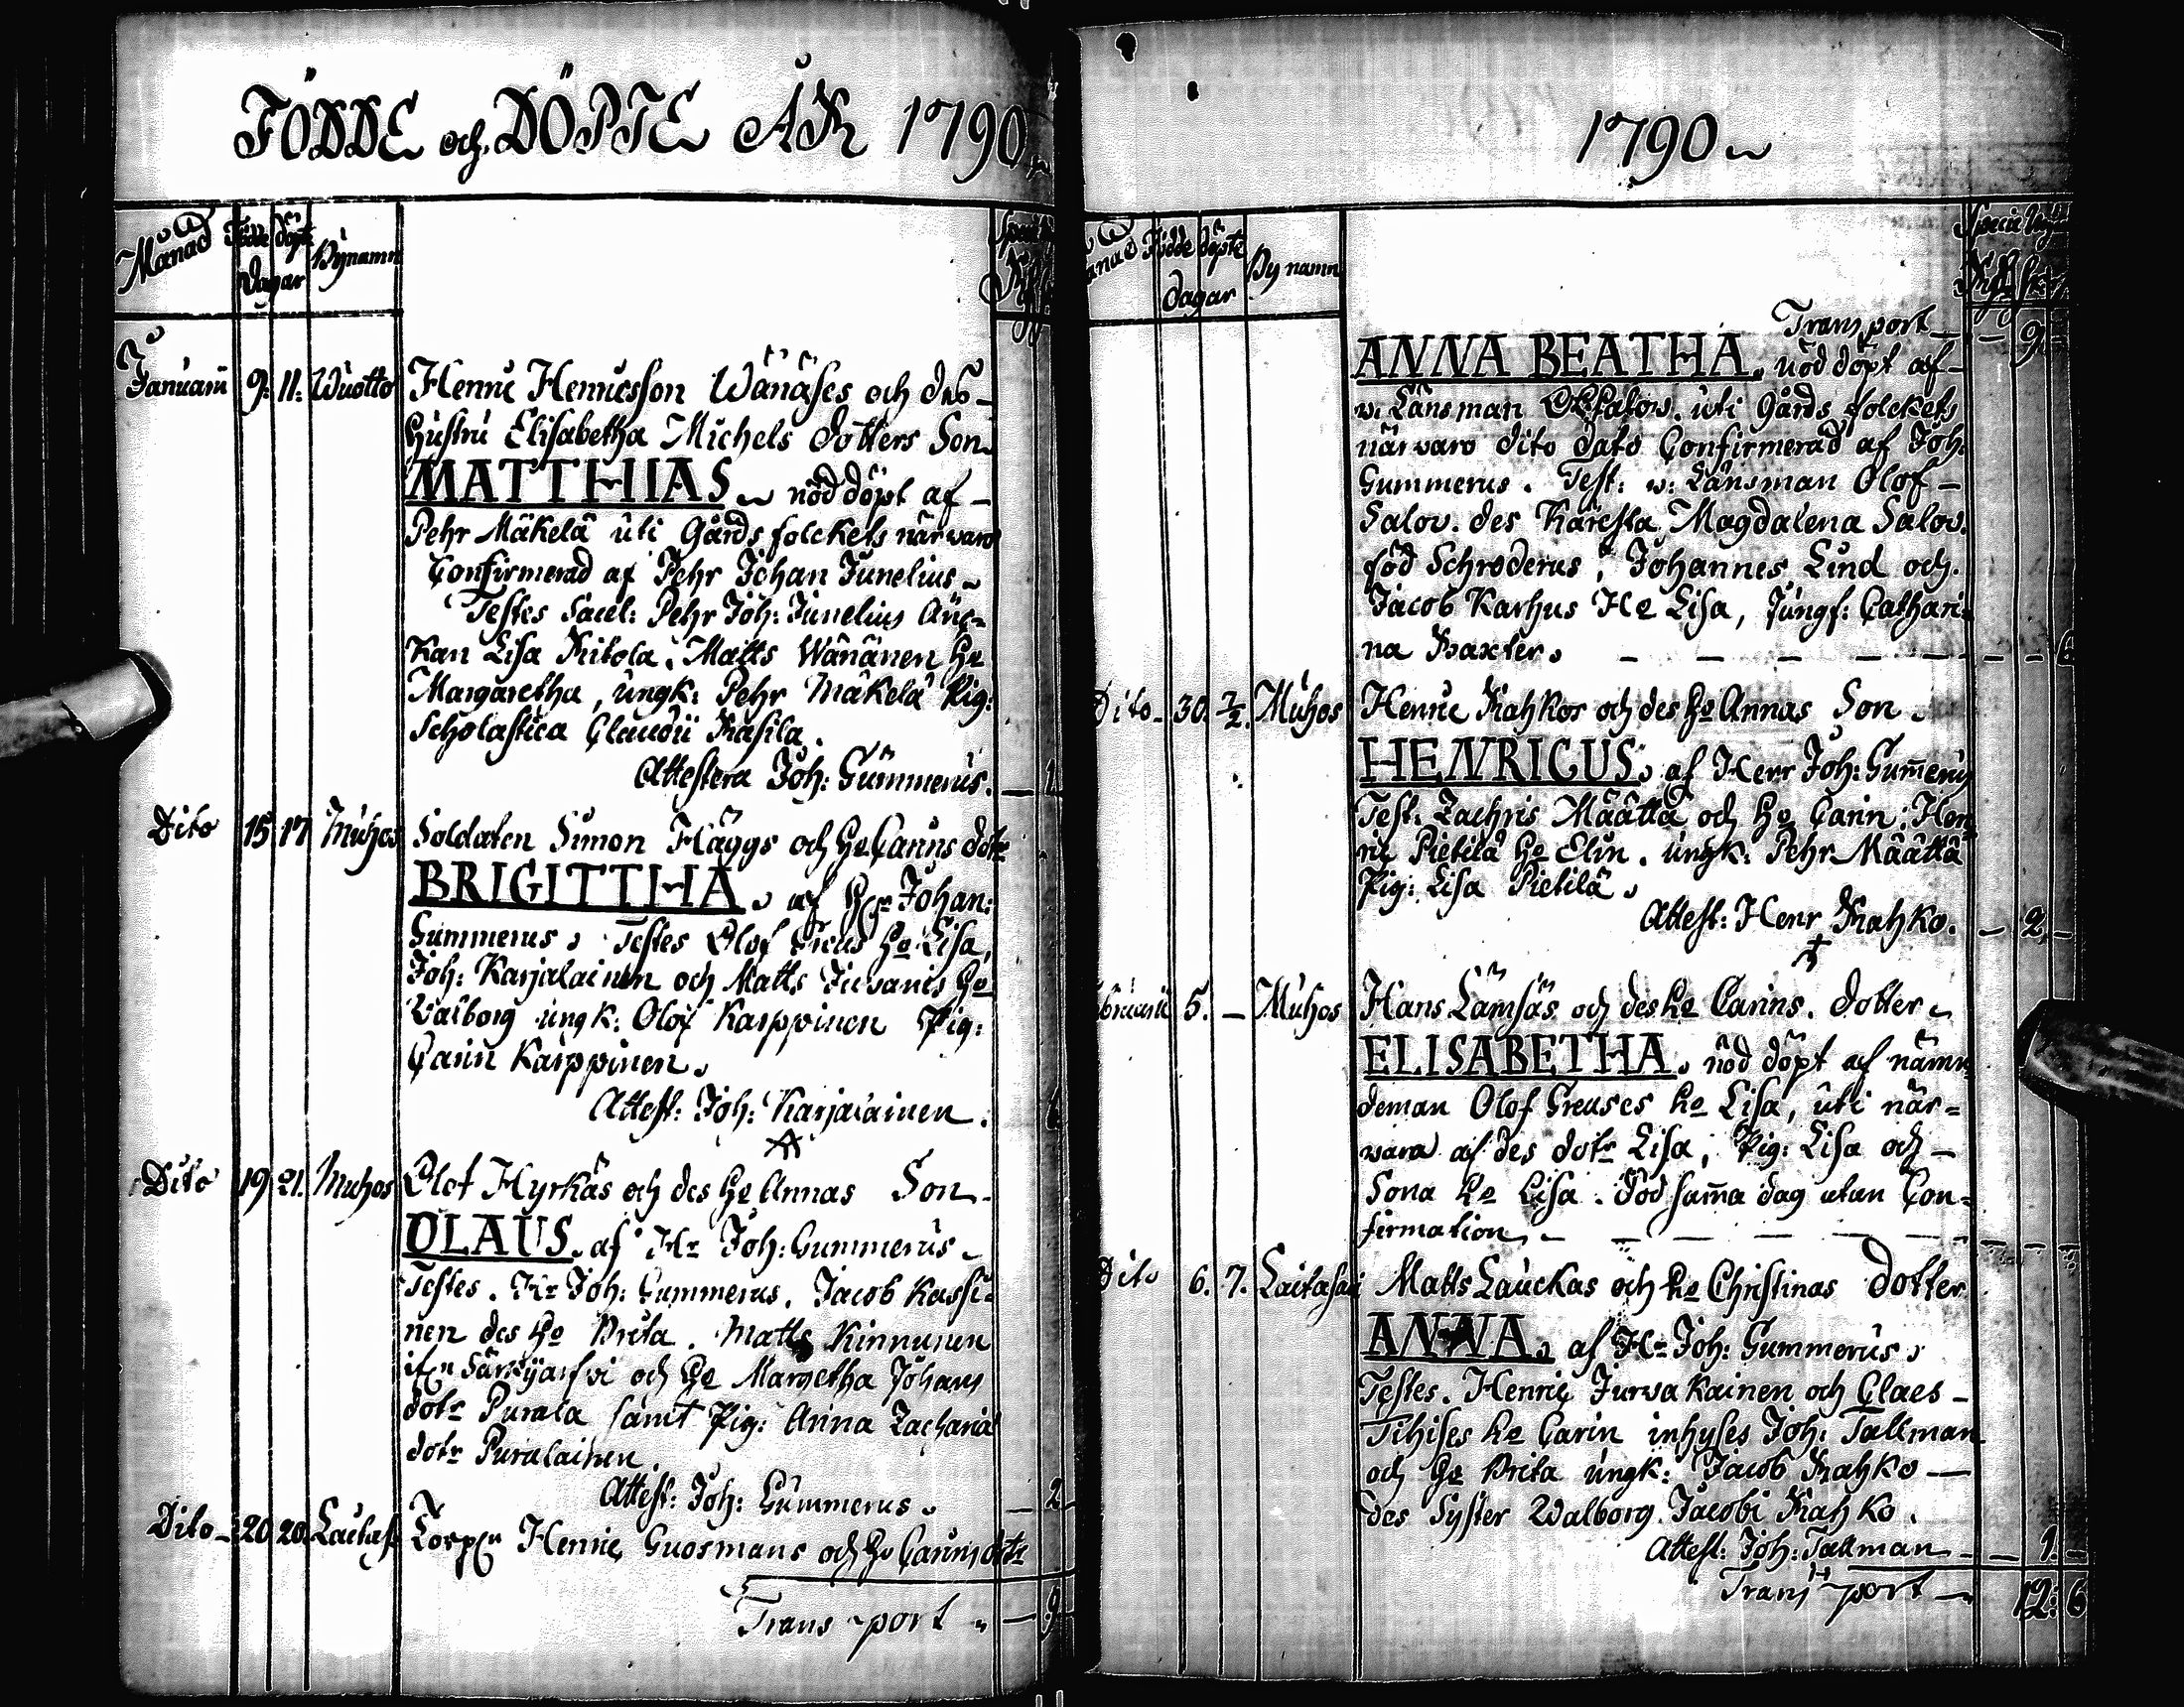 FÖDDE och DÖPTE ÅR 1790
Månad Födde döpt Dagar Bynamn
Januarii 9. 11. Wuotto Henric Henricsson Wänäses och des
hustru Elisabetha Michels dotters Son
MATTHIAS nöd döpt af
Pehr Mäkelä uti Gårds folckets närvaro
Confirmerad af Pehr Johan Junelius
Testes Sacel: Pehr Joh: Junelius
Lisa Matts Wänänen ho
Margaretha, ungk: Pehr Mäkelä Pig:
Scholastica Claudii
Attestera Joh: Gummerus. 1
Dito 15 17 Muhos Soldaten Simon Häggs och ho Carins dotr
BRIGITTHA. af Johan:
Gummerus. Testes Olof ho Lisa,
Joh: Karjalainen och Matts ho
Walborg ungk: Olof Karppinen Pig:
Carin Karppinen.
Attest: Joh: Karjalainen.
Dito 19 21. Muhos Olof Hyrkäs och des ho Annas Son
OLAUS. af Hr Joh: Gummerus
Testes. Hr Joh: Gummerus. Jacob Kassi-
nen des ho Brita. Matts Kinnunen
och ho Margetha Johans
dotr Purala samt Pig: Anna Zacharia
dotr Puralainen
Attest: Joh: Gummerus. 2
Dito 20 20. Henric Guosmans och ho Carins dotr
Transport 9
1790
Månad Födde döpte dagar By namn
Transport 9
ANNA BEATHA. nöd döpt af
v. Länsman uti Gårds folckets
närvaro dito dato Confirmerad af Joh:
Gummerus. Test: v: Länsman Olof
Salov. des Käresta Magdalena Salov.
föd Schroderus, Johannes Lind och.
Jacob Karhus Ho Lisa, Jungf: Cathari-
na Baxter. 6
Dito 30. 2/2. Muhos Henric Kahkos och des ho Annas Son
HENRICUS. af Herr Joh: Gummerus
Test: Zachris Määttä och ho Carin. Hen-
ric Pietilä ho Elin. ungk: Pehr Määttä
Pig: Lisa Pietilä.
Attest: Henr Kahko. 2
Februarii 5. – Muhos Hans Lämsäs och des ho Carins. dotter
ELISABETHA. nöd döpt af nämn-
deman Olof Greuses ho Lisa, uti när-
vara af des dotr Lisa, Pig: Lisa och
Sona ho Lisa. Död samma dag utan Con-
firmation
Dito 6. 7. Laitasari Matts Lauckas och ho Christinas dotter
ANNA. af Hr Joh: Gummerus.
Testes. Henric Jurvakainen och Claes
Tihises ho Carin inhyses Joh: Tallman
och ho Brita ungk: Jacob Kahko
des Syster Walborg Jacobi Kahko.
Attest: Joh: Tallman 1.
Transport 12: 6